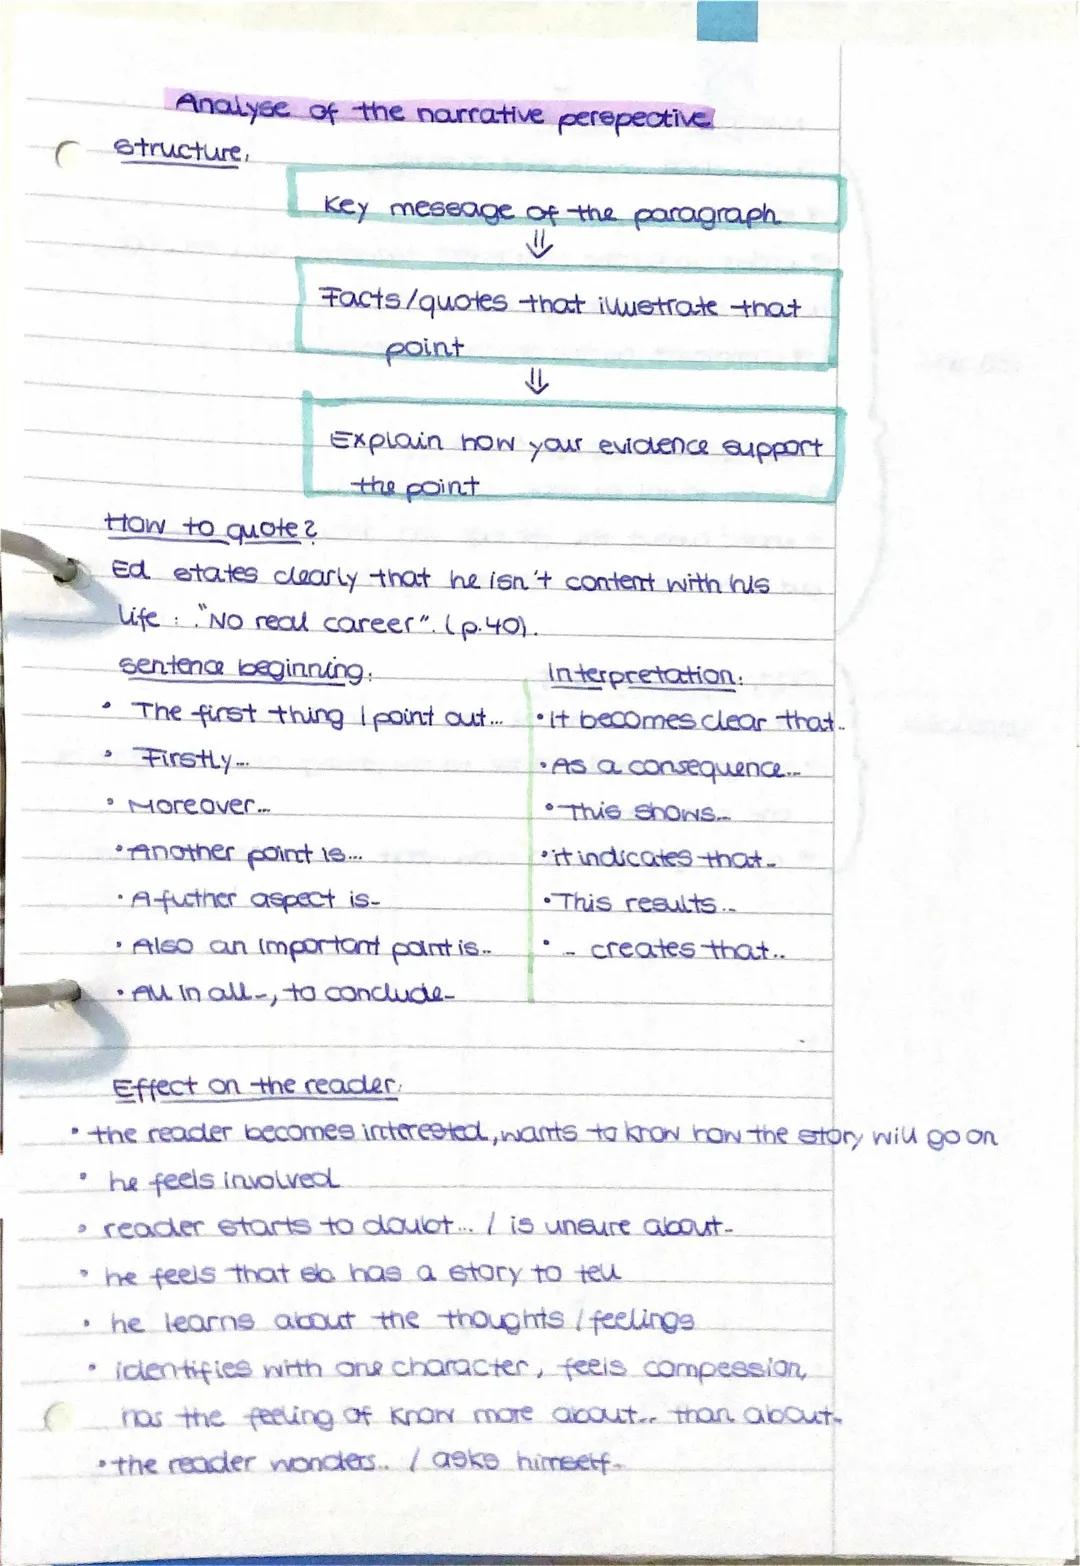 Analyse of the narrative perspective
Structure:
Key message of the paragraph
⇓
Facts/quotes that illustrate that
point
⇓
Explain how your evidence support
the point
How to quote?
Ed states clearly that he isn't content with his
life : "No real career". (p.40).
Sentence beginning:
• The first thing I point out...
• Firstly...
• Moreover...
• Another point is...
• A futher aspect is...
• Also an important point is...
• All in all..., to conclude...
Interpretation:
• it becomes clear that...
• As a consequence...
• This shows...
• it indicates that...
• This results...
• ... creates that...
Effect on the reader:
• the reader becomes interested, wants to know how the story will go on
• he feels involved
• reader starts to doubt... / is unsure about...
• he feels that sb. has a story to tell
• he learns about the thoughts / feelings
• identifies with one character, feels compession,
has the feeling of know more about... than about...
• the reader wonders... / asks himself...